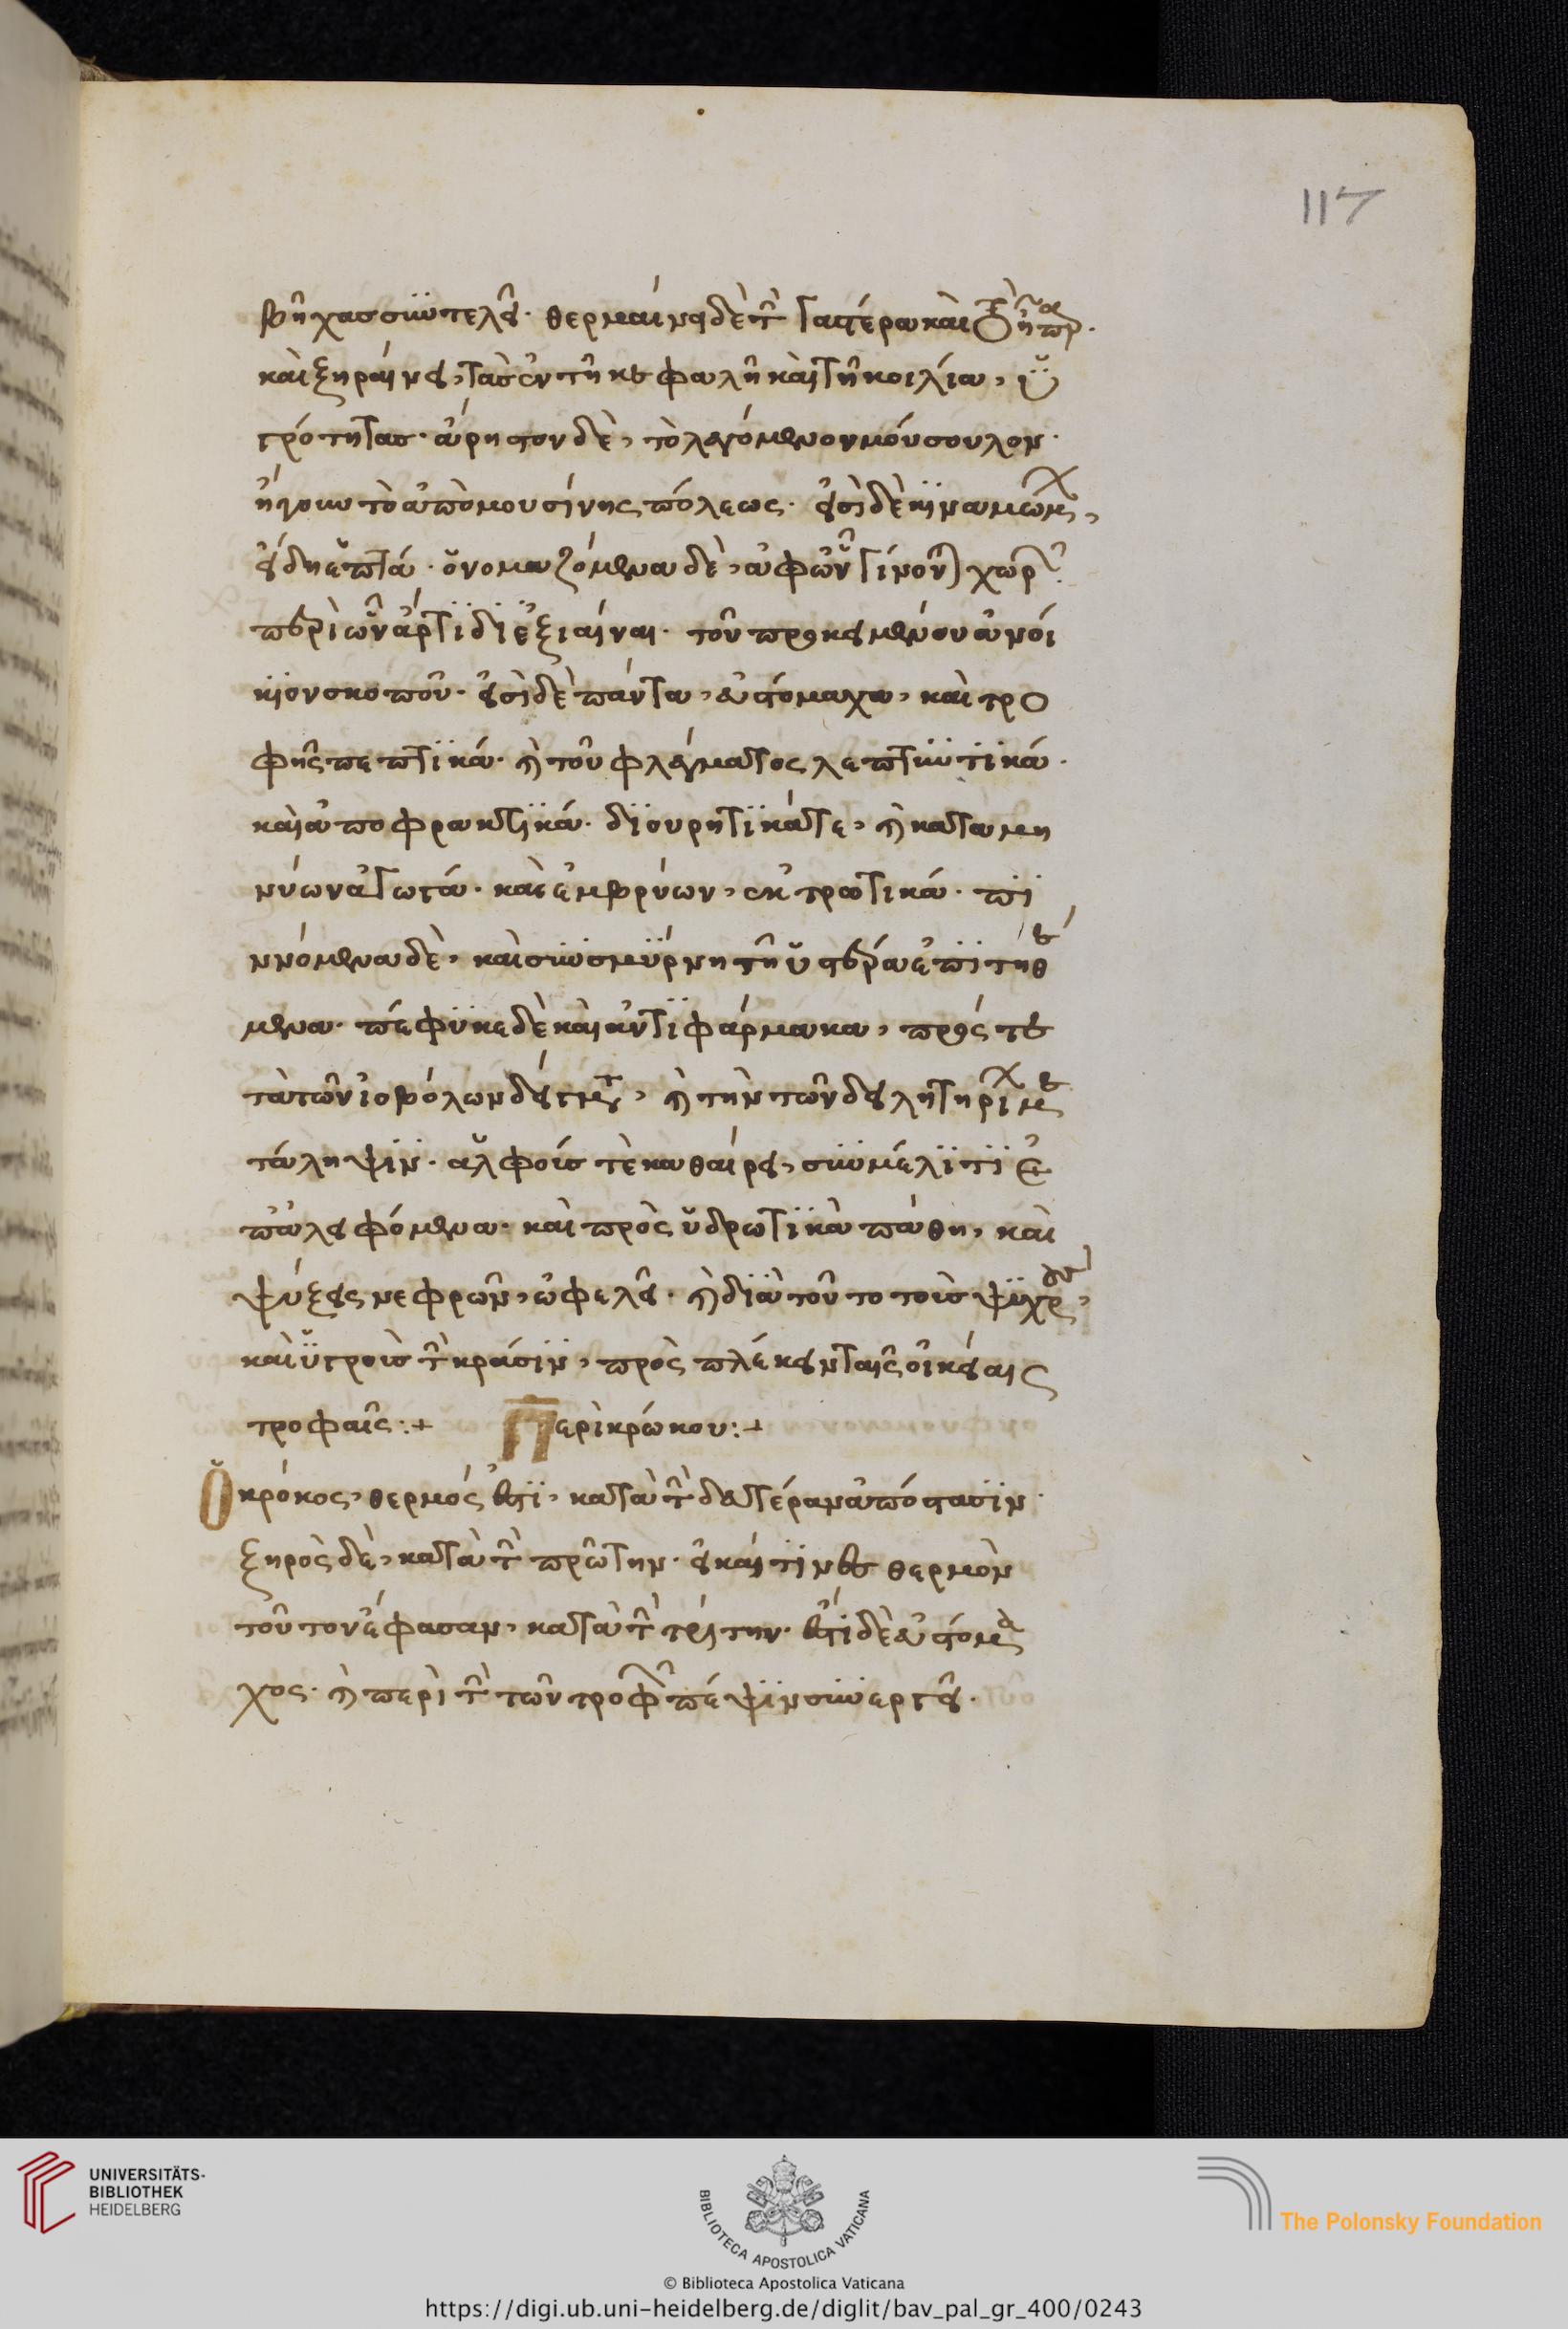 117
βῆχας συντελεῖ· θερμαίνει δὲ τὴν γαστέρα καὶ τὸ ἧπαρ·
καὶ ξηραίνει, τὰς ἐν τῇ κεφαλῇ καὶ τῇ κοιλία, ὑ
γρότητας· ἄριστον δὲ, τὸ λεγόμενον μόσουλον·
ἤγουν τὸ ἀπὸ μουσίνης πόλεως· εἰσὶ δὲ κιναμώμων,
εἴδη ἑπτά· ὀνομαζόμενα δὲ, ἀφ' ὧν γίνονται χωρῶν
περὶ ὧν ἄρτι διεξιέναι· τοῦ προκειμένου ἀνοί
κιον σκοποῦ· εἰσὶ δὲ πάντα, εὐστόμαχα, καὶ τρο
φῆς πεπτικά· καὶ τοῦ φλέγματος λεπτυντικά·
καὶ ἀποφρακτικά· διουρητικά τε, καὶ καταμη
νίων ἀγωγά· καὶ ἐμβρύων, ἐκτρωτικά· πι
νόμενα δὲ, καὶ σὺν σμύρνη τῇ ὑστέρα ἐπιτηθέ
μενα· πέφυκε δὲ καὶ ἀντιφάρμακα, πρός τε
τὰ τῶν ἰοβόλων δείγματα, καὶ τὴν τῶν δηλητηρίων με
τάληψιν· ἀλφούς τε καθαίρει, σὺν μέλιτι ἐ
παλειφόμενα· καὶ πρὸς ὑδρωτικὰ πάθη, καὶ
ψύξεις νεφρῶν, ὠφελεῖ· καὶ διὰ τοῦτο τοῖς ψυχροῖς,
καὶ ὑγροῖς τὴν κράσιν, πρὸς πλέκειν ταῖς οἰκείαις
τροφαῖς:+ Περὶ κρόκου:+
Ὁ κρόκος, θερμός ἐστι, κατὰ τὴν δευτέραν ἀπόστασιν·
ξηρὸς δὲ, κατὰ τὴν πρώτην· εἰ καί τινες θερμὸν
τοῦτον ἔφασαν, κατὰ τὴν τρίτην· ἐστὶ δὲ εὐστόμα
χος· καὶ περὶ τὴν τῶν τροφῶν πέψιν συνεργεῖ·
UNIVERSITÄTS-
BIBLIOTHEK
HEIDELBERG
BIBLIOTECA APOSTOLICA VATICANA
The Polonsky Foundation
© Biblioteca Apostolica Vaticana
https://digi.ub.uni-heidelberg.de/diglit/bav_pal_gr_400/0243